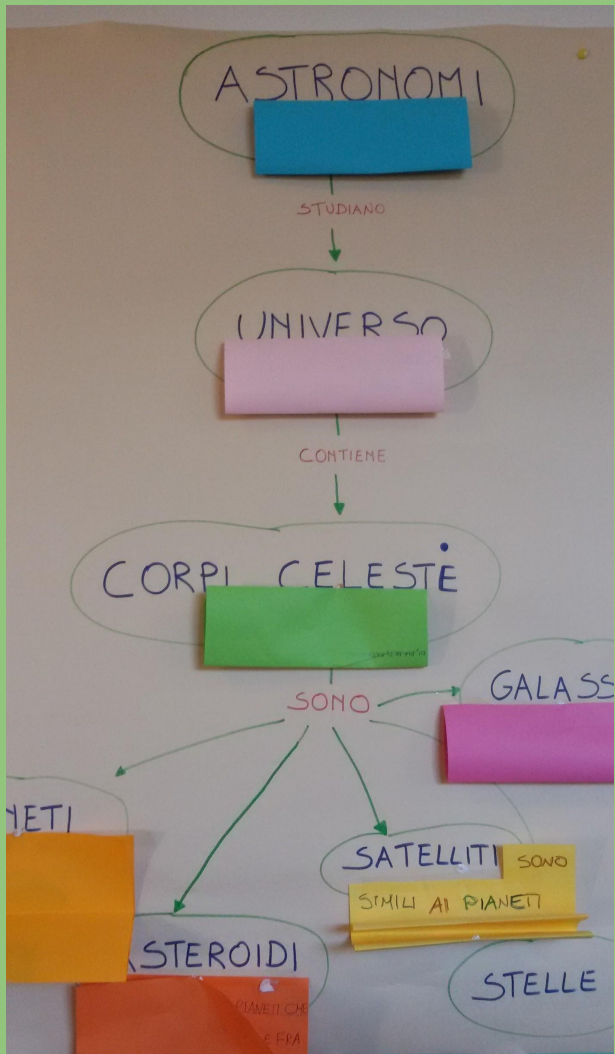 ASTRONOMI
STUDIANO
UNIVERSO
CONTIENE
CORPI CELESTI
SONO
GALASS
NETI
SATELLITI SONO
SIMILI AI PIANETI
ASTEROIDI
STELLE
PIANETI CHE
E FRA